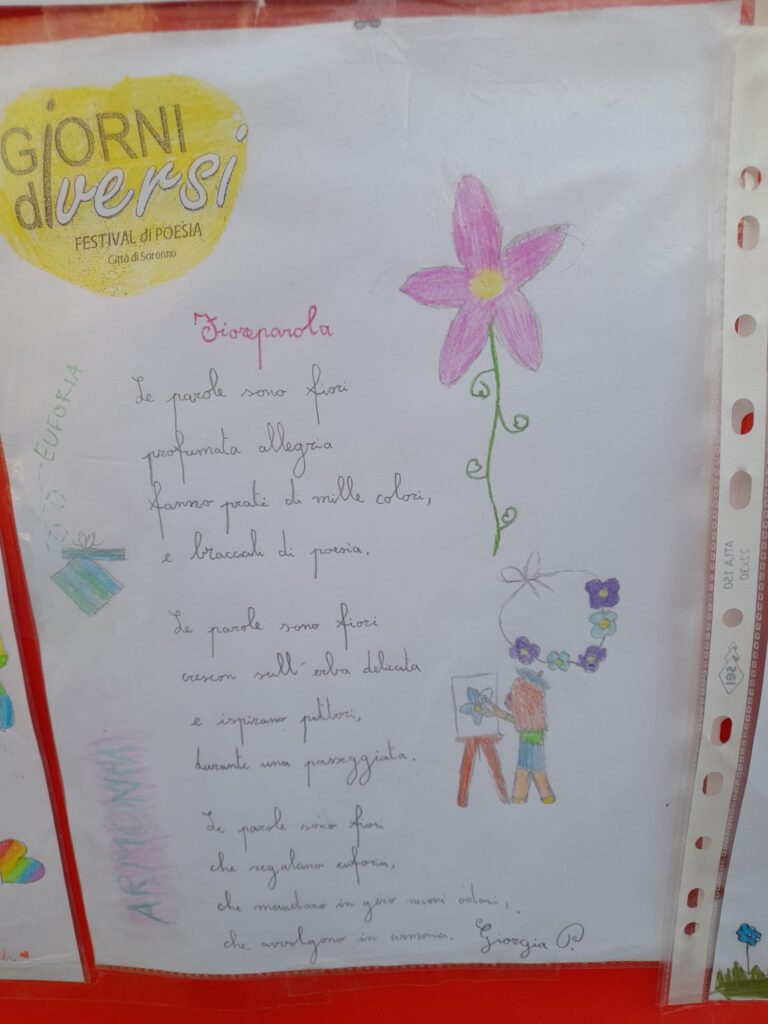 GiORNI
diversi
FESTIVAL di POESIA
Città di Saronno
Fioreparola
Le parole sono fiori
profumata allegria
fanno prati di mille colori,
e bracciali di poesia.
Le parole sono fiori
crescon sull'erba delicata
e ispirano pittori,
durante una passeggiata.
Le parole sono fiori
che regalano euforia,
che mandano in giro nuovi odori,
che avvolgono in armonia. Giorgia P.
EUFORIA
ARMONIA
ATLA 150
22x30
SEI